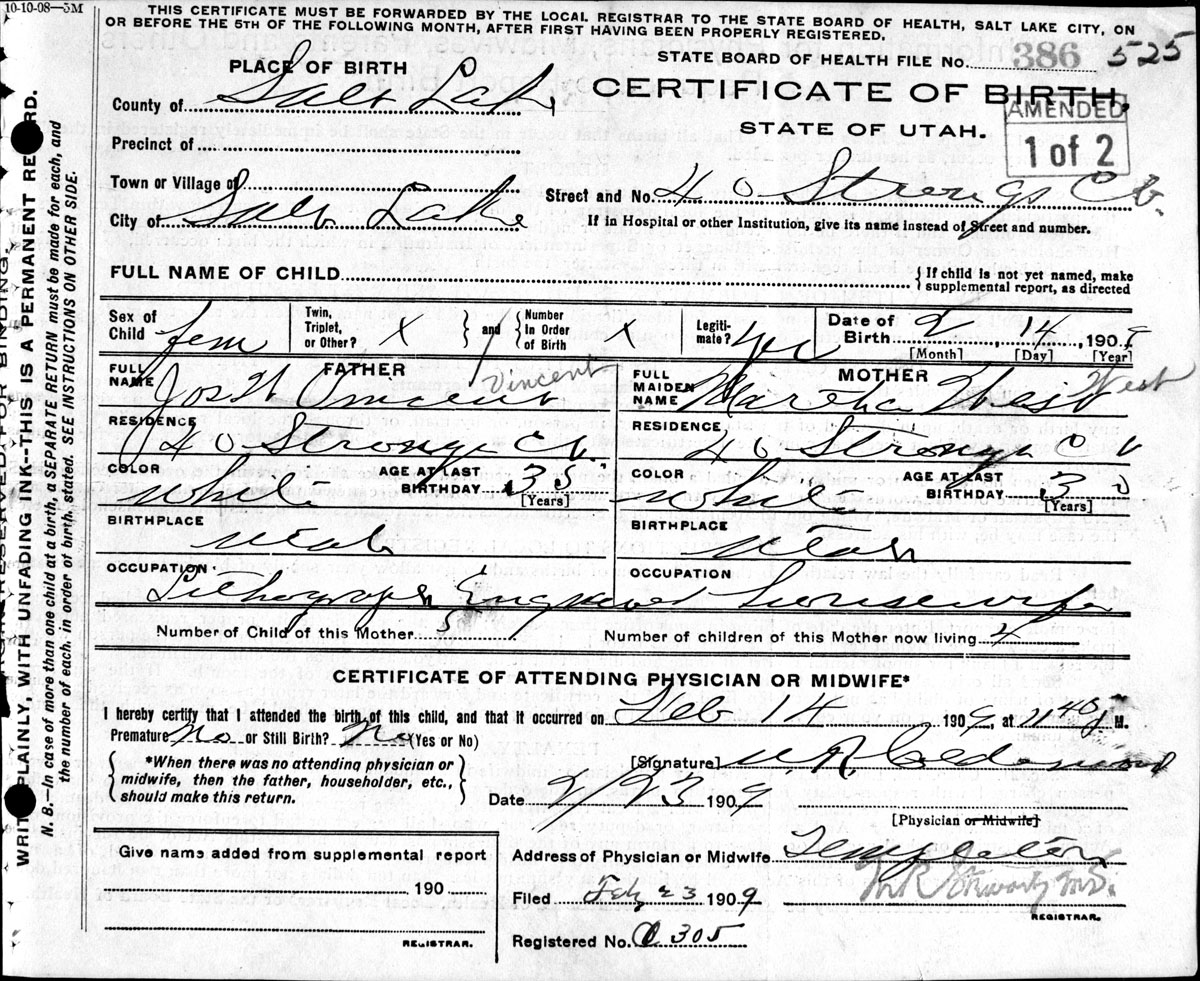 10-10-08—5M
THIS CERTIFICATE MUST BE FORWARDED BY THE LOCAL REGISTRAR TO THE STATE BOARD OF HEALTH, SALT LAKE CITY, ON
OR BEFORE THE 5TH OF THE FOLLOWING MONTH, AFTER FIRST HAVING BEEN PROPERLY REGISTERED.
STATE BOARD OF HEALTH FILE NO. 386 525
PLACE OF BIRTH
CERTIFICATE OF BIRTH.
County of Salt Lake
STATE OF UTAH.
AMENDED
1 of 2
Precinct of
Town or Village of
Street and No. 40 Strongs Ct.
City of Salt Lake
If in Hospital or other Institution, give its name instead of Street and number.
FULL NAME OF CHILD
{If child is not yet named, make
supplemental report, as directed
Sex of Child fem
Twin, Triplet, or Other? X } and { Number In Order of Birth X
Legiti-mate? Yes
Date of Birth 2, 14, 1909
[Month] [Day] [Year]
FATHER
FULL NAME Jos H Vincent Vincent
MOTHER
FULL MAIDEN NAME Martha West West
RESIDENCE 40 Strongs Ct
RESIDENCE 40 Strongs Ct
COLOR White AGE AT LAST BIRTHDAY 35 [Years]
COLOR White AGE AT LAST BIRTHDAY 30 [Years]
BIRTHPLACE Utah
BIRTHPLACE Utah
OCCUPATION Lithograph Engraver
OCCUPATION Housewife
Number of Child of this Mother 5
Number of children of this Mother now living 4
CERTIFICATE OF ATTENDING PHYSICIAN OR MIDWIFE*
I hereby certify that I attended the birth of this child, and that it occurred on Feb 14 1909 at 11 40 M.
Premature No or Still Birth? No (Yes or No)
{ *When there was no attending physician or
midwife, then the father, householder, etc.,
should make this return. }
[Signature]
Date 2/23 1909
[Physician or Midwife]
Give name added from supplemental report
190
REGISTRAR.
Address of Physician or Midwife Templeton
Filed Feby 23 1909
REGISTRAR.
Registered No. 305
WRITE PLAINLY, WITH UNFADING INK--THIS IS A PERMANENT RECORD.
N. B.—In case of more than one child at a birth, a SEPARATE RETURN must be made for each, and
the number of each, in order of birth, stated. SEE INSTRUCTIONS ON OTHER SIDE.